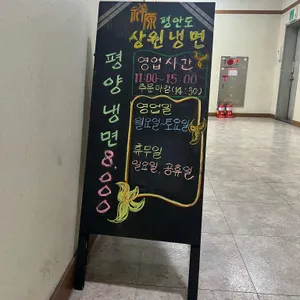 祥原 평안도
상원냉면
영업시간
11:00~15:00
주문마감(14:30)
영업일
월요일~토요일
휴무일
일요일, 공휴일
평양냉면 8,000